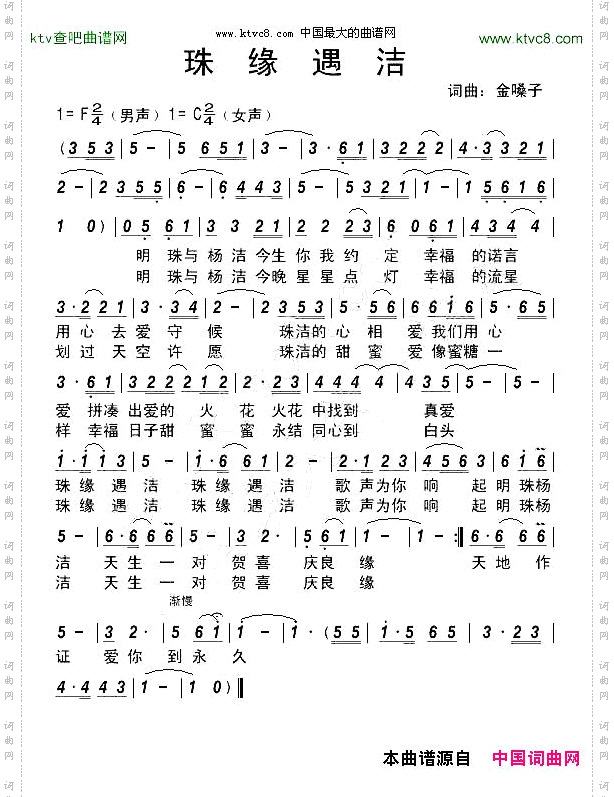 ktv查吧曲谱网
www.ktvc8.com 中国最大的曲谱网
www.ktvc8.com
珠 缘 遇 洁
词曲：金嗓子
1=F2/4（男声）1=C2/4（女声）
(3 5 3 | 5 - | 5 6 5 1 | 3 - | 3 · 6 1 | 3 2 3 2 | 2 2 2 2 | 4 · 3 3 2 1 |
2 - | 2 3 5 5 | 6 - | 6 4 4 3 | 5 - | 5 3 2 1 | 1 - | 1 5 6 1 6 |
1 0) | 0 5 6 1 | 3 3 2 1 | 2 2 | 2 3 4 3 2 | 6 0 6 1 | 4 3 4 4 |
明 珠与 杨 洁 今生 你 我 约 定 幸福 的诺言
明 珠与 杨 洁 今晚 星 星 点 灯 幸福 的流星
3 · 2 2 1 | 3 · 3 4 | 2 - | 2 3 2 3 | 5 · 5 6 | 6 6 6 1 | 5 · 6 5 |
用 心 去 爱 守 候 珠洁的 心 相 爱 我们用 心
划 过 天 空 许 愿 珠洁的 甜 蜜 爱 像蜜糖 一
3 · 6 1 | 3 2 2 2 1 2 | 2 · 3 2 3 | 4 4 4 4 | 4 · 3 4 3 | 5 - | 5 - |
爱 拼凑 出爱的 火 花 火花 中找到 真爱
样 幸福 日子甜 蜜 蜜 永结 同心到 白头
1 · 1 1 3 | 5 - | 1 · 6 6 1 | 2 - | 2 · 2 2 1 | 4 4 5 6 3 | 6 1 6 |
珠 缘 遇 洁 珠 缘 遇 洁 歌 声为你 响 起 明 珠杨
珠 缘 遇 洁 珠 缘 遇 洁 歌 声为你 响 起 明 珠杨
5 - | 6 · 6 6 6 | 5 - | 3 2 · | 5 6 1 | 1 - | 1 - :| 6 · 6 6 6 |
洁 天 生 一 对 贺 喜 庆良 缘 天 地 作
洁 天 生 一 对 贺 喜 庆良 缘
渐慢
5 - | 3 2 · | 5 6 1 | 1 - | 1 · (5 5 | 1 · 5 5 1 | 4 · 3 | 5 · 2 3 |
证 爱 你 到 永 久
4 · 4 4 3 | 1 - | 1 0) ‖
本曲谱源自 中国词曲网
词曲网